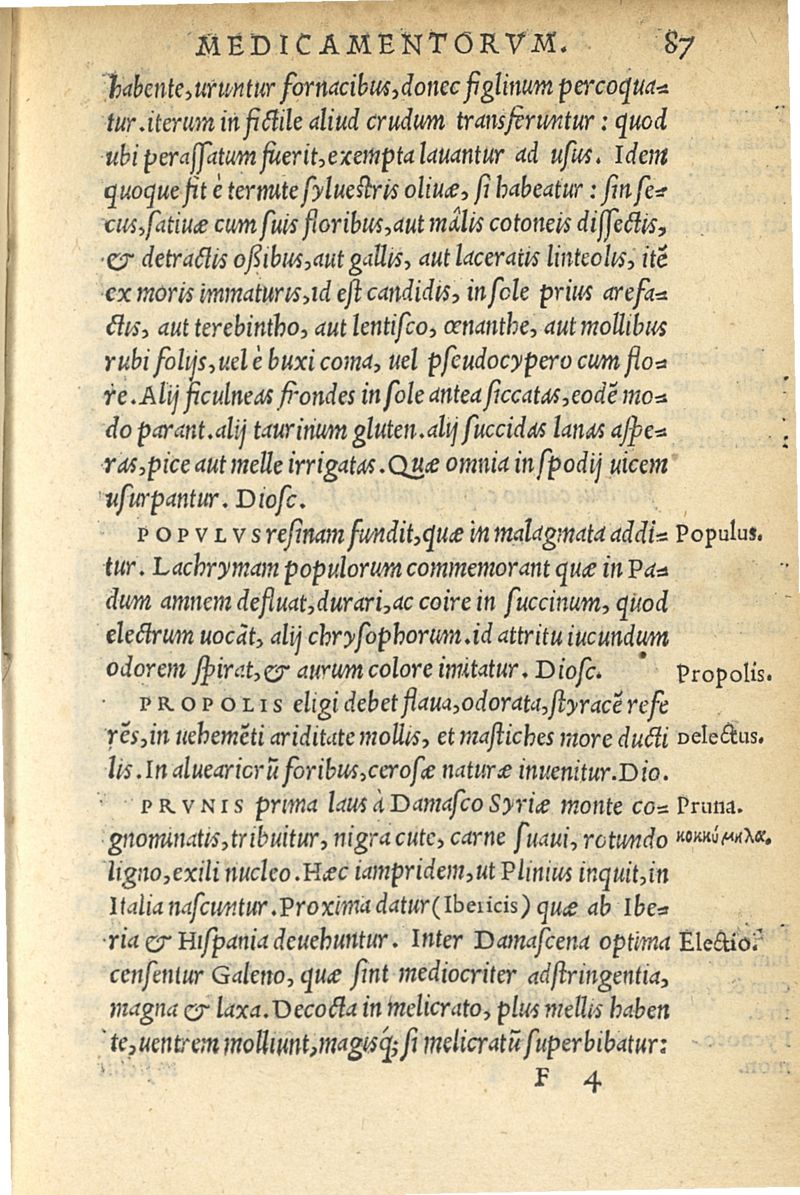 MEDICAMENTORVM. 87
habente, uruntur fornacibus, donec figlinum percoqua=
tur. iterum in fictile aliud crudum transferuntur : quod
ubi perassatum fuerit, exempta lavantur ad usus. Idem
quoque fit è termite syluestris oliuæ, si habeatur : sin se=
cus, satiuæ cum suis floribus, aut mâlis cotoneis dissectis,
& detractis oßibus, aut gallis, aut laceratis linteolis, itẽ
ex moris immaturis, id est candidis, in sole prius arefa=
ctis, aut terebintho, aut lentisco, œnanthe, aut mollibus
rubi folijs, uel è buxi coma, uel pseudocypero cum flo=
re. Alij ficulneas frondes in sole antea siccatas, eodẽ mo=
do parant. alij taurinum gluten. alij succidas lanas aspe=
ras, pice aut melle irrigatas. Quæ omnia in spodij uicem
usurpantur. Diosc.
POPVLVS resinam fundit, quæ in malagmata addi= Populus.
tur. Lachrymam populorum commemorant quæ in Pa=
dum amnem defluat, durari, ac coire in succinum, quod
electrum uocãt, alij chrysophorum. id attritu iucundum
odorem spirat, & aurum colore imitatur. Diosc. Propolis.
PROPOLIS eligi debet flaua, odorata, styracẽ refe
rẽs, in uehemẽti ariditate mollis, et mastiches more ducti Delectus.
lis. In aluearicrũ foribus, cerosæ naturæ inuenitur. Dio.
PRVNIS prima laus à Damasco Syriæ monte co= Pruna.
gnominatis, tribuitur, nigra cute, carne suaui, rotundo κοκκύμηλα.
ligno, exili nucleo. Hæc iampridem, ut Plinius inquit, in
Italia nascuntur. Proxima datur (Ibericis) quæ ab Ibe=
ria & Hispania deuehuntur. Inter Damascena optima Electio.
censentur Galeno, quæ sint mediocriter adstringentia,
magna & laxa. Decocta in melicrato, plus mellis haben
te, uentrem molliunt, magisq́; si melicratũ superbibatur:
F 4